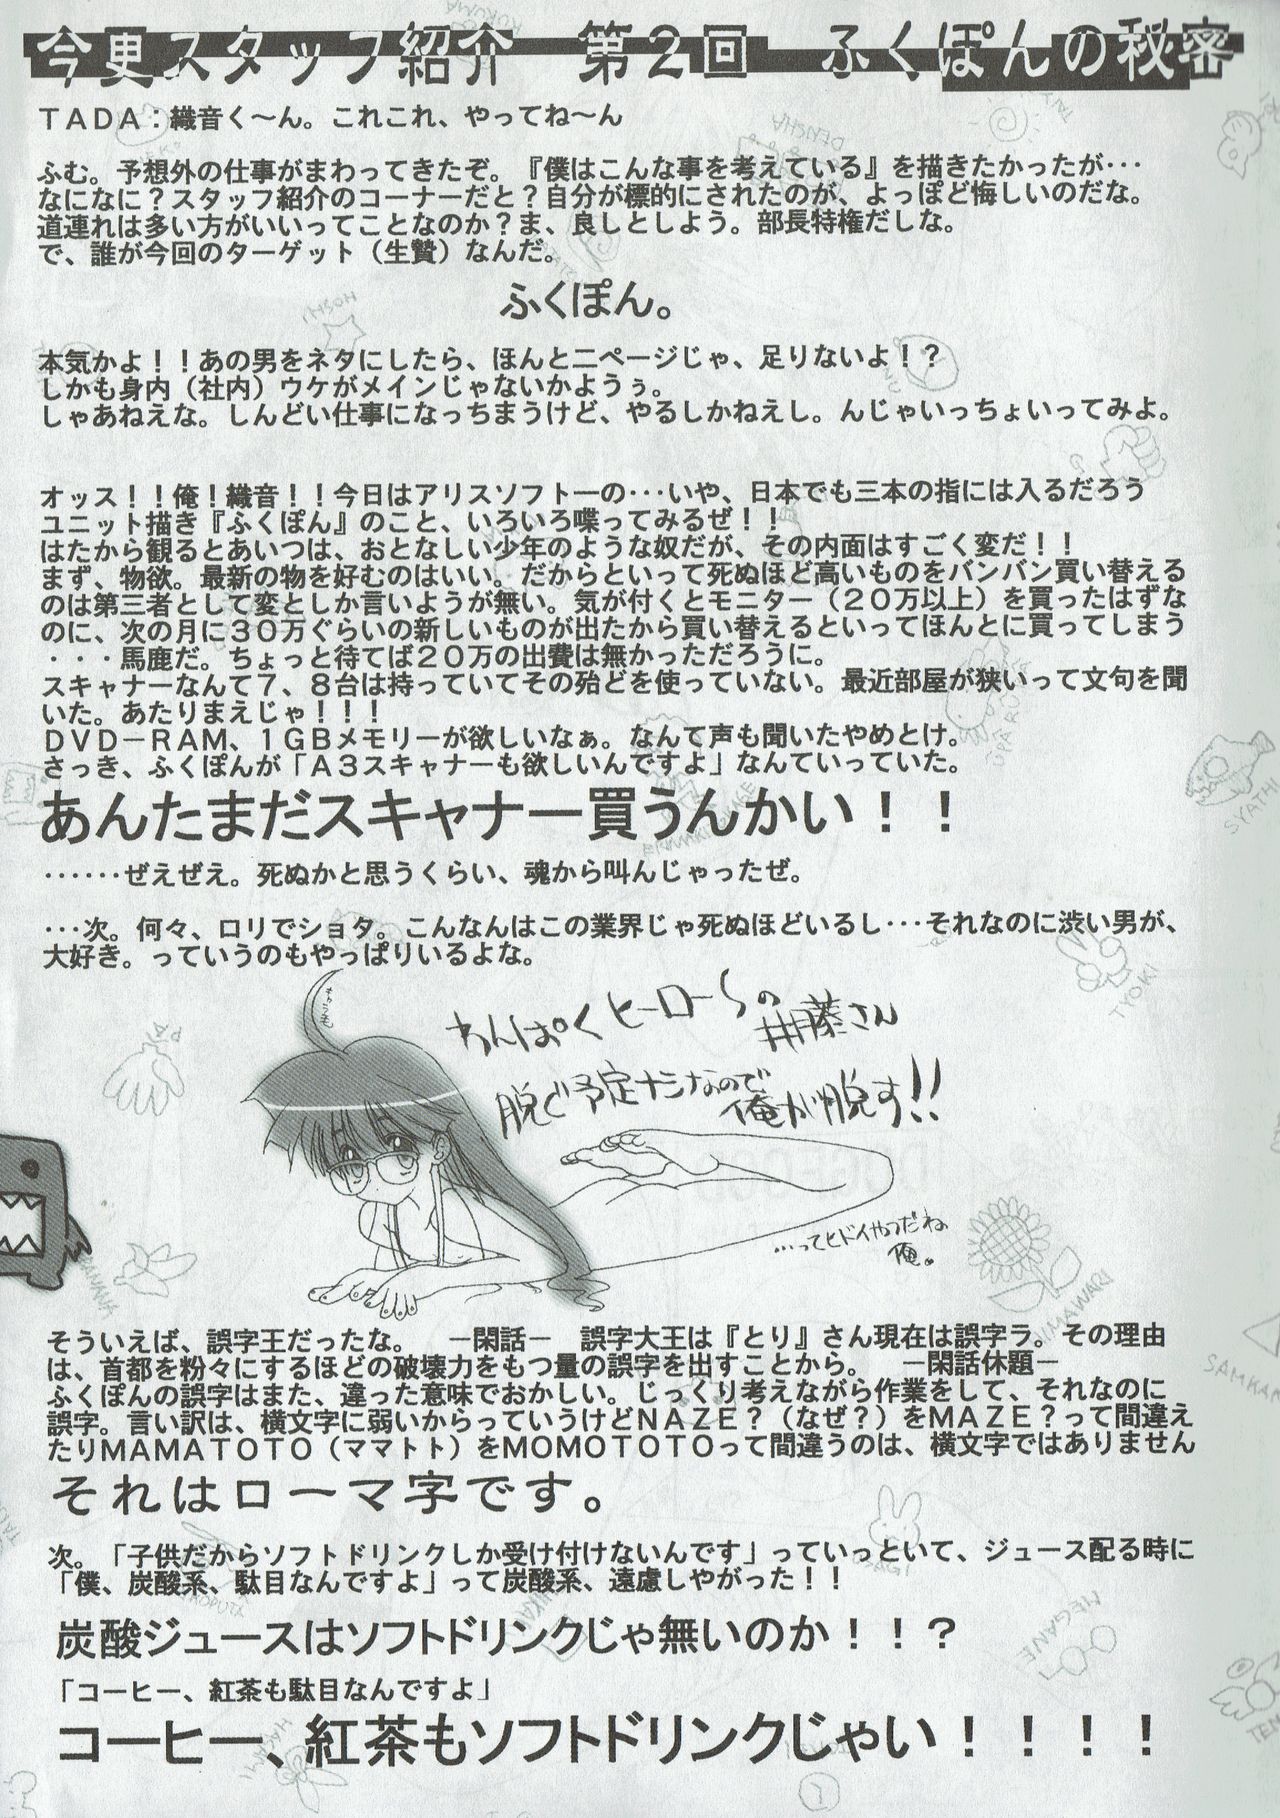 今更スタッフ紹介　第２回　ふくぽんの秘密
ＴＡＤＡ：織音く～ん。これこれ、やってね～ん
ふむ。予想外の仕事がまわってきたぞ。『僕はこんな事を考えている』を描きたかったが･･･
なになに？スタッフ紹介のコーナーだと？自分が標的にされたのが、よっぽど悔しいのだな。
道連れは多い方がいいってことなのか？ま、良しとしよう。部長特権だしな。
で、誰が今回のターゲット（生贄）なんだ。
ふくぽん。
本気かよ！！あの男をネタにしたら、ほんと二ページじゃ、足りないよ！？
しかも身内（社内）ウケがメインじゃないかようぅ。
しゃあねえな。しんどい仕事になっちまうけど、やるしかねえし。んじゃいっちょいってみよ。
オッス！！俺！織音！！今日はアリスソフト一の･･･いや、日本でも三本の指には入るだろう
ユニット描き『ふくぽん』のこと、いろいろ喋ってみるぜ！！
はたから観るとあいつは、おとなしい少年のような奴だが、その内面はすごく変だ！！
まず、物欲。最新の物を好むのはいい。だからといって死ぬほど高いものをバンバン買い替える
のは第三者として変としか言いようが無い。気が付くとモニター（２０万以上）を買ったはずな
のに、次の月に３０万ぐらいの新しいものが出たから買い替えるといってほんとに買ってしまう
・・・馬鹿だ。ちょっと待てば２０万の出費は無かっただろうに。
スキャナーなんて７、８台は持っていてその殆どを使っていない。最近部屋が狭いって文句を聞
いた。あたりまえじゃ！！！
ＤＶＤ－ＲＡＭ、１ＧＢメモリーが欲しいなぁ。なんて声も聞いたやめとけ。
さっき、ふくぽんが「Ａ３スキャナーも欲しいんですよ」なんていっていた。
あんたまだスキャナー買うんかい！！
･･････ぜえぜえ。死ぬかと思うくらい、魂から叫んじゃったぜ。
･･･次。何々、ロリでショタ。こんなんはこの業界じゃ死ぬほどいるし･･･それなのに渋い男が、
大好き。っていうのもやっぱりいるよな。
わんぱくヒーロー〜の
井藤さん
脱ぐ予定ナシなので
俺が脱す!!
…ってヒドイやつだね
俺。
そういえば、誤字王だったな。　－閑話－　誤字大王は『とり』さん現在は誤字ラ。その理由
は、首都を粉々にするほどの破壊力をもつ量の誤字を出すことから。　－閑話休題－
ふくぽんの誤字はまた、違った意味でおかしい。じっくり考えながら作業をして、それなのに
誤字。言い訳は、横文字に弱いからっていうけどＮＡＺＥ？（なぜ？）をＭＡＺＥ？って間違え
たりＭＡＭＡＴＯＴＯ（ママトト）をＭＯＭＯＴＯＴＯって間違うのは、横文字ではありません
それはローマ字です。
次。「子供だからソフトドリンクしか受け付けないんです」っていっといて、ジュース配る時に
「僕、炭酸系、駄目なんですよ」って炭酸系、遠慮しやがった！！
炭酸ジュースはソフトドリンクじゃ無いのか！！？
「コーヒー、紅茶も駄目なんですよ」
コーヒー、紅茶もソフトドリンクじゃい！！！！
DENCHA
HOSHI
SYATHI
TYOKI
PA
BANANA
HIMAWARI
USAGI
MEGANE